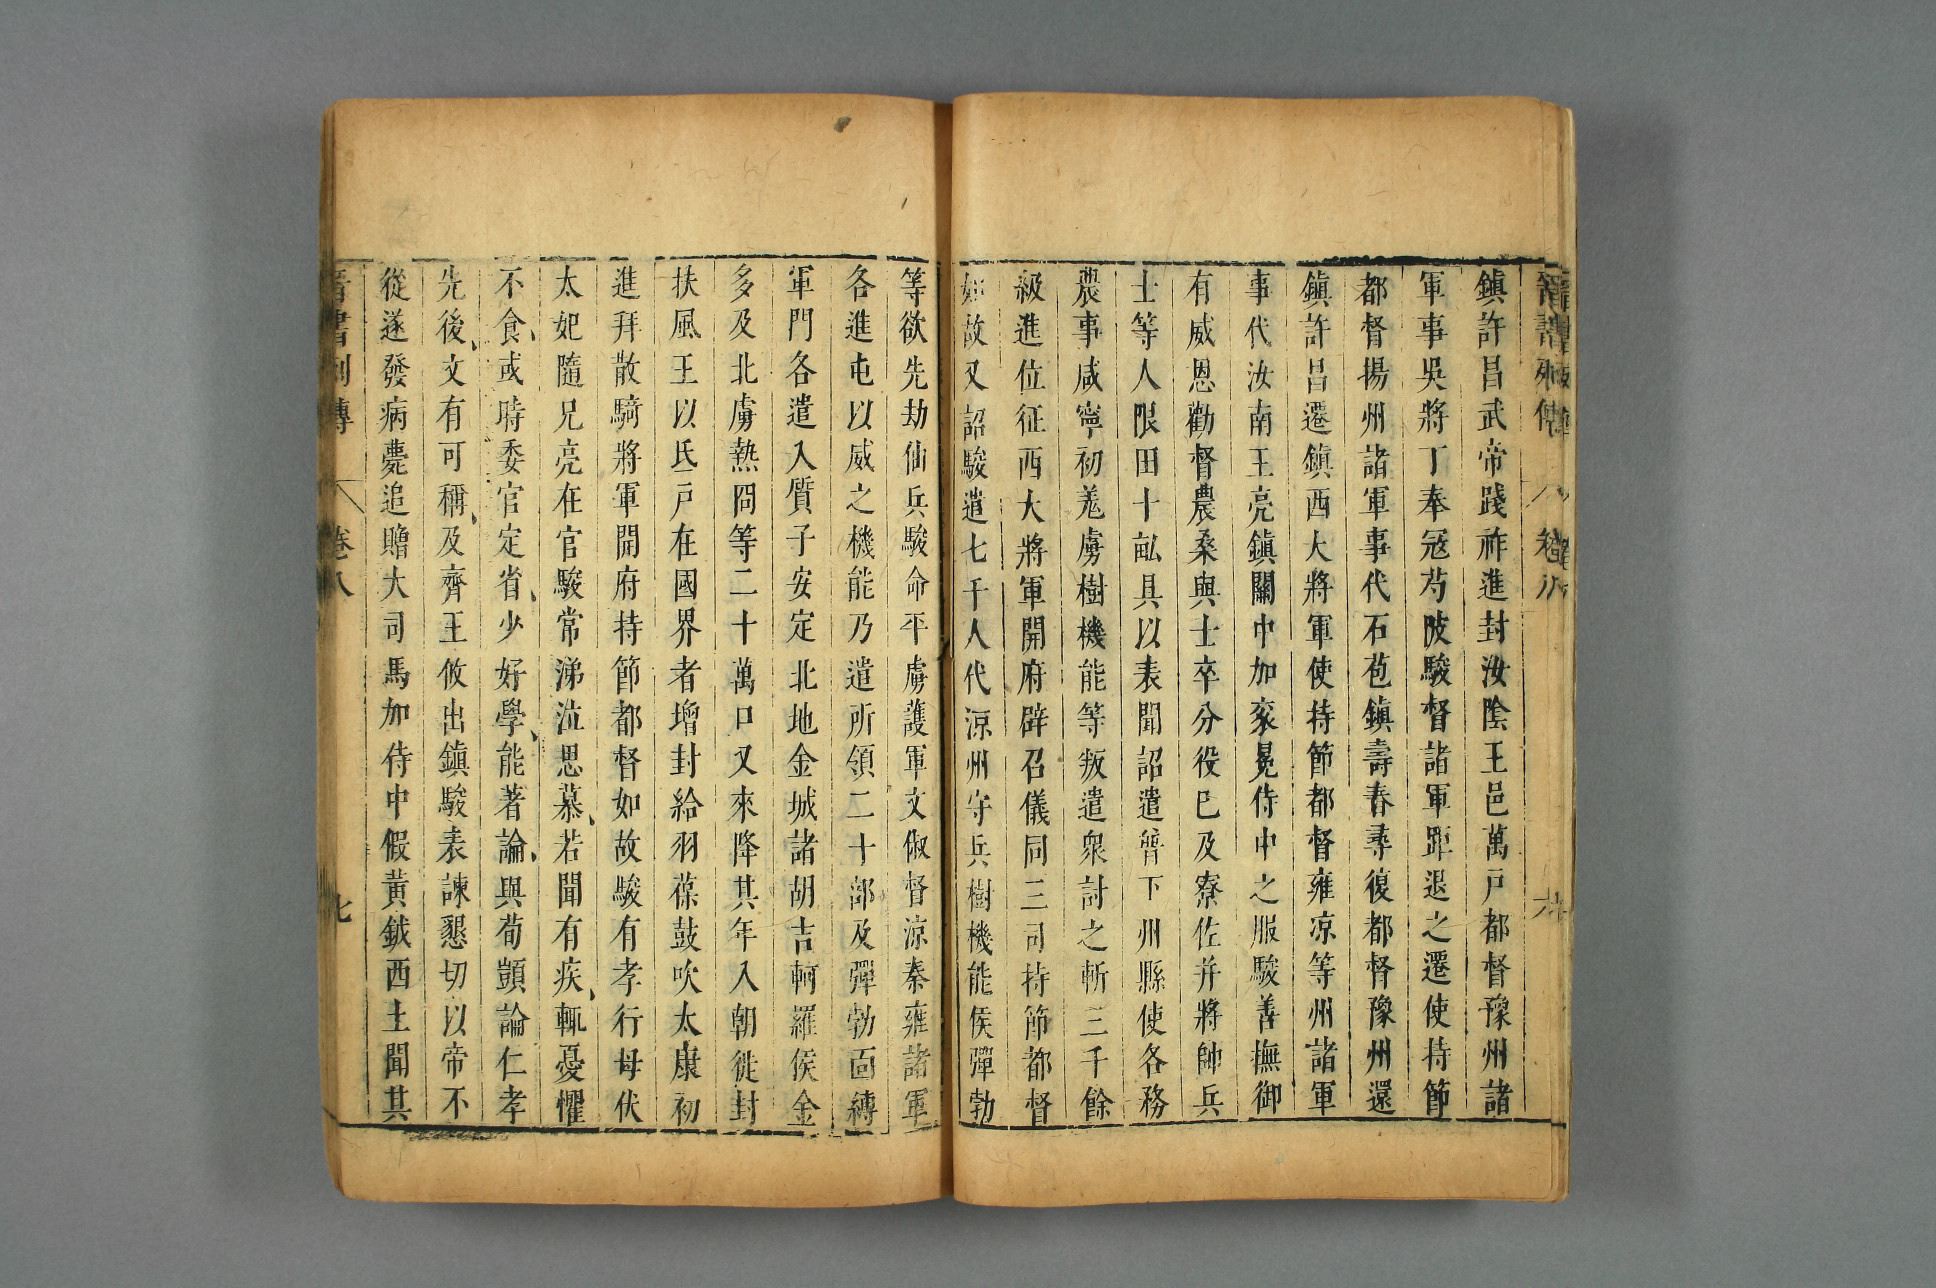 晉書列傳 卷八 六
鎮許昌武帝踐祚進封汝陰王邑萬戸都督豫州諸
軍事吳將丁奉冦芍陂駿督諸軍距退之遷使持節
都督揚州諸軍事代石苞鎮壽春尋復都督豫州還
鎮許昌遷鎮西大將軍使持節都督雍凉等州諸軍
事代汝南王亮鎮關中加衮冕侍中之服駿善撫御
有威恩勸督農桑與士卒分役巳及寮佐并將帥兵
士等人限田十畆具以表聞詔遣普下州縣使各務
農事咸寧初羗虜樹機能等叛遣衆討之斬三千餘
級進位征西大將軍開府辟召儀同三司持節都督
如故又詔駿遣七千人代凉州守兵樹機能侯彈勃
等欲先劫佃兵駿命平虜護軍文俶督凉秦雍諸軍
各進屯以威之機能乃遣所領二十部及彈勃面縛
軍門各遣入質子安定北地金城諸胡吉軻羅侯金
多及北虜熱冏等二十萬口又來降其年入朝徙封
扶風王以氐戸在國界者增封給羽葆鼓吹太康初
進拜散騎將軍開府持節都督如故駿有孝行母伏
太妃隨兄亮在官駿常涕泣思慕若聞有疾輒憂懼
不食或時委官定省少好學能著論與荀顗論仁孝
先後文有可稱及齊王攸出鎮駿表諫懇切以帝不
從遂發病薨追贈大司馬加侍中假黃鉞西土聞其
晉書列傳 卷八 七